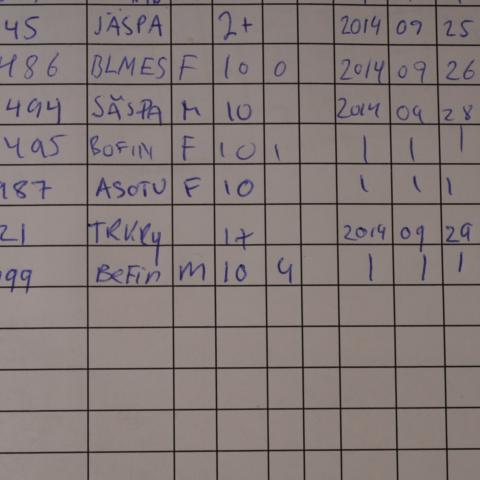 45 JÄSPA 2+ 2014 09 25
486 BLMES F 10 0 2014 09 26
494 SÄSPA M 10 2014 09 28
495 BOFIN F 10 1 | | |
987 ASOTU F 10 | | |
21 TRKRY 1+ 2014 09 29
999 BeFin M 10 4 | | |